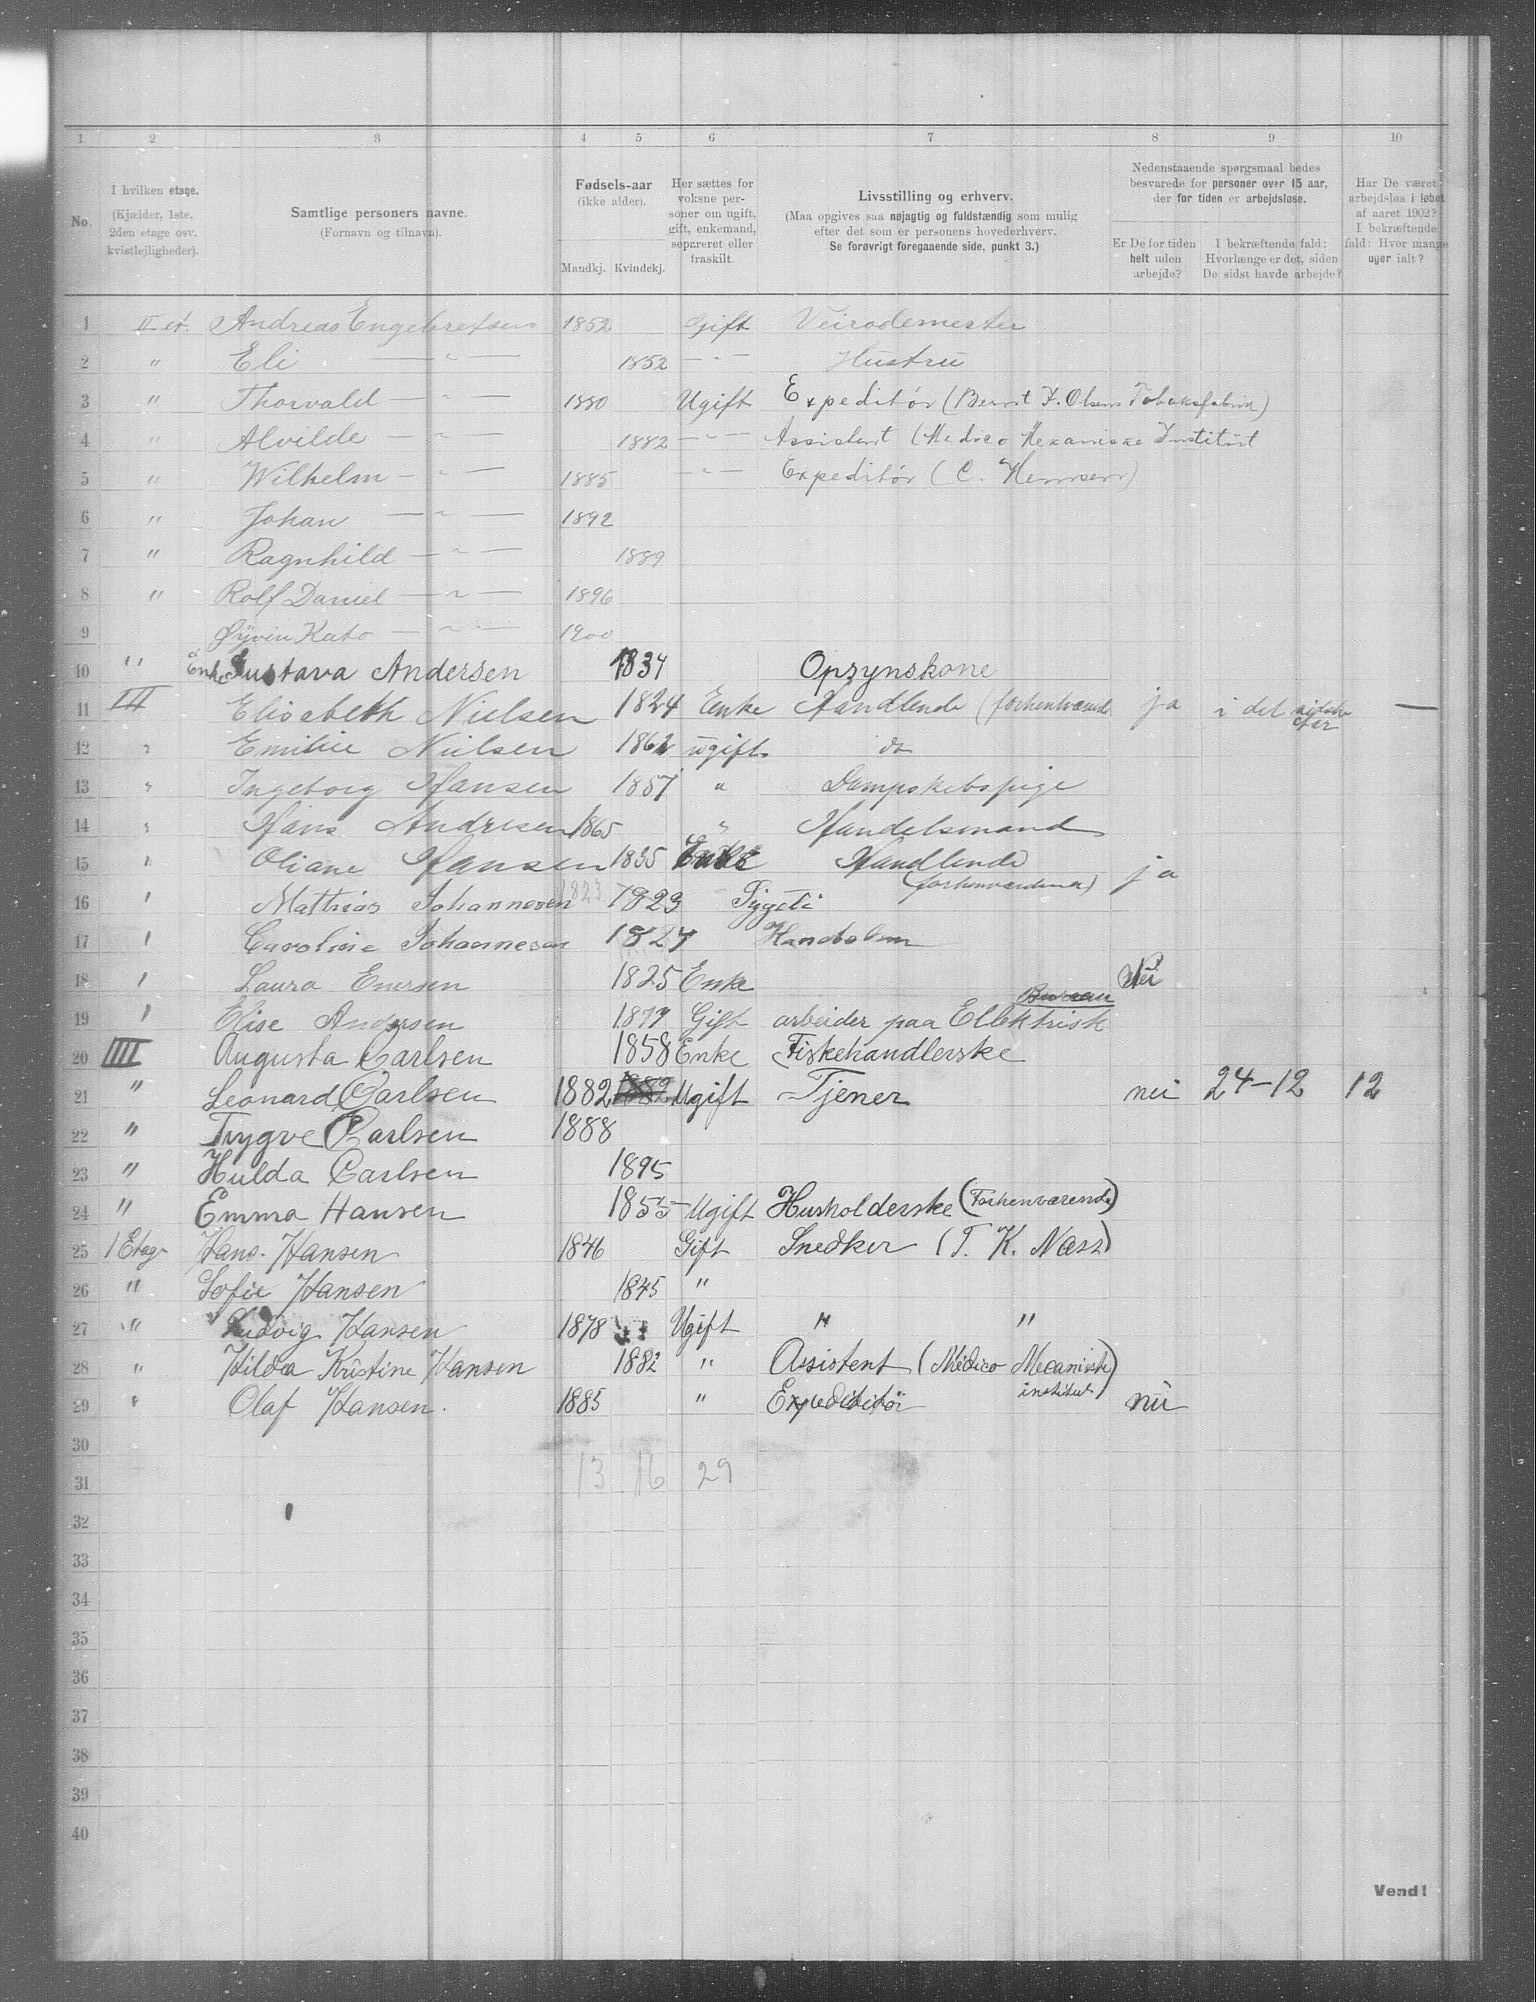 1 2 3 4 5 6 7 8 9 10
No.
I hvilken etage.
(Kjælder, 1ste.
2den etage osv.
kvistlejligheder).
Samtlige personers navne.
(Fornavn og tilnavn).
Fødsels-aar
(ikke alder).
Mandkj. Kvindekj.
Her sættes for
voksne per-
soner om ugift,
gift, enkemand,
separeret eller
fraskilt.
Livsstilling og erhverv.
(Maa opgives saa nøjagtig og fuldstændig som mulig
efter det som er personens hovederhverv.
Se forøvrigt foregaaende side, punkt 3.)
Nedenstaaende spørgsmaal bedes
besvarede for personer over 15 aar,
der for tiden er arbejdsløse.
Er De for tiden
helt uden
arbejde?
I bekræftende fald:
Hvorlænge er det, siden
De sidst havde arbejde?
Har De været
arbejdsløs i løbet
af aaret 1902?
I bekræftende
fald: Hvor mange
uger ialt?
1 II et. Andreas Engebretsen 1852 Gift Veirodemester
2 " Eli — " — 1852 — " — Hustru
3 " Thorvald — " — 1880 Ugift Expeditør (Bernt F. Olsens Tobaksfabrik)
4 " Alvilde — " — 1882 — " — Assistent (Medico Mekaniske Institut
5 " Wilhelm — " — 1885 — " — Expeditør (C. )
6 " Johan — " — 1892
7 " Ragnhild — " — 1889
8 " Rolf Daniel — " — 1896
9 Øyvin Kato — " — 1900
10 " Enke Gustava Andersen 1834 Opsynskone
11 III Elisabeth Nielsen 1824 Enke Handlende (forhenværende ja i det sidste aar —
12 " Emilie Nielsen 1862 ugift do
13 " Ingeborg Hansen 1857 " Dampskibspige
14 " Hans Andresen 1865 " Handelsmand
15 " Oliane Hansen 1835 Enke Handlende
(forhenværende) ja
16 " Mathias Johannesen 1823 1823
17 " Caroline Johannesen 1827
18 " Laura Enersen 1825 Enke Nei
19 " Elise Andersen 1877 Gift arbeider paa Ellektrisk Bureau
20 IIII Augusta Carlsen 1858 Enke Fiskehandlerske
21 " Leonard Carlsen 1882 1882 Ugift Tjener nei 24-12 12
22 " Trygve Carlsen 1888
23 " Hulda Carlsen 1895
24 " Emma Hansen 1855 Ugift Husholderske (Forhenværende)
25 1 Etage Hans Hansen 1846 Gift Snedker (T. K. Næss)
26 " Sofie Hansen 1845 "
27 " Ludvig Hansen 1878 Ugift " "
28 " Hilda Kristine Hansen 1882 " Assistent (Medico Mecanisk
institut)
29 " Olaf Hansen. 1885 " Expeditør nei
30
31 13 16 29
32
33
34
35
36
37
38
39
40
Vend!